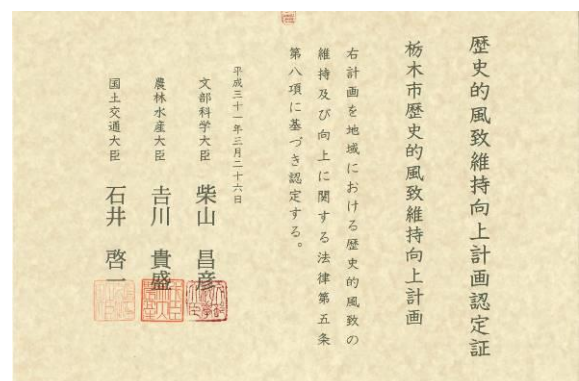 歴史的風致維持向上計画認定証
栃木市歴史的風致維持向上計画
右計画を地域における歴史的風致の
維持及び向上に関する法律第五条
第八項に基づき認定する。
平成三十一年三月二十六日
文部科学大臣 柴山 昌彦
農林水産大臣 𠮷川 貴盛
国土交通大臣 石井 啓一